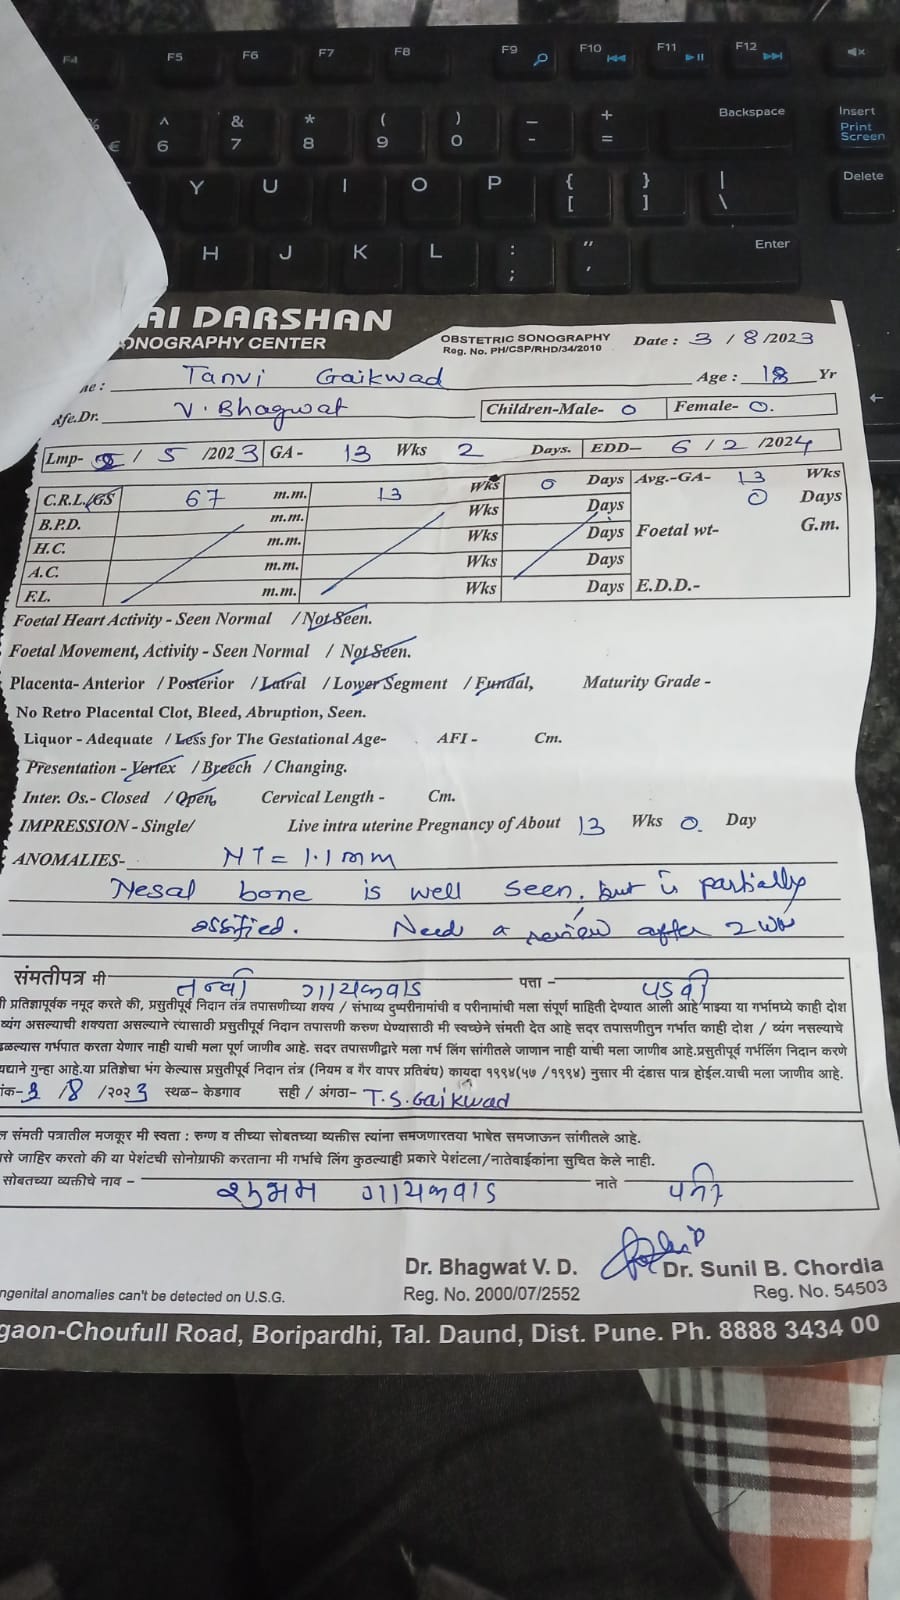 F4 F5 F6 F7 F8 F9 F10 F11 F12
% € ^ 6 & 7 * 8 ( 9 ) 0 _ - + = Backspace Insert Print Screen
Y U I O P { [ } ] | \ Delete
H J K L : ; " ' Enter
AI DARSHAN
ONOGRAPHY CENTER
OBSTETRIC SONOGRAPHY
Reg. No. PH/CSP/RHD/34/2010
Date : 3 / 8 /2023
ne : Tanvi Gaikwad Age : 18 Yr
Rfe.Dr. V. Bhagwat Children-Male- 0 Female- 0.
Lmp- / 5 /2023 GA- 13 Wks 2 Days. EDD- 6 / 2 /2024
C.R.L./GS 67 m.m. 13 Wks 0 Days Avg.-GA- 13 Wks
B.P.D. m.m. Wks Days 0 Days
H.C. m.m. Wks Days Foetal wt- G.m.
A.C. m.m. Wks Days
F.L. m.m. Wks Days E.D.D.-
Foetal Heart Activity - Seen Normal / Not Seen.
Foetal Movement, Activity - Seen Normal / Not Seen.
Placenta- Anterior / Posterior / Latral / Lower Segment / Fundal, Maturity Grade -
No Retro Placental Clot, Bleed, Abruption, Seen.
Liquor - Adequate / Less for The Gestational Age- AFI - Cm.
Presentation - Vertex / Breech / Changing.
Inter. Os.- Closed / Open, Cervical Length - Cm.
IMPRESSION - Single/ Live intra uterine Pregnancy of About 13 Wks 0. Day
ANOMALIES- NT = 1.1 mm
Nesal bone is well seen, but is partially
ossified. Need a review after 2 wk
संमतीपत्र मी तन्वी गायकवाड पत्ता - पडवी
ी प्रतिज्ञापूर्वक नमूद करते की, प्रसुतीपूर्व निदान तंत्र तपासणीच्या शक्य / संभाव्य दुष्परीनामांची व परीनामांची मला संपूर्ण माहिती देण्यात आली आहे माझ्या या गर्भामध्ये काही दोश
व्यंग असल्याची शक्यता असल्याने त्यासाठी प्रसुतीपूर्व निदान तपासणी करुण घेण्यासाठी मी स्वच्छेने संमती देत आहे सदर तपासणीतुन गर्भात काही दोश / व्यंग नसल्याचे
ढळल्यास गर्भपात करता येणार नाही याची मला पूर्ण जाणीव आहे. सदर तपासणीद्वारे मला गर्भ लिंग सांगीतले जाणान नाही याची मला जाणीव आहे.प्रसुतीपूर्व गर्भलिंग निदान करणे
यद्याने गुन्हा आहे.या प्रतिज्ञेचा भंग केल्यास प्रसुतीपूर्व निदान तंत्र (नियम व गैर वापर प्रतिबंध) कायदा १९९४(५७ /१९९४) नुसार मी दंडास पात्र होईल.याची मला जाणीव आहे.
ांक- 3 /8 /२०२3 स्थळ- केडगाव सही / अंगठा- T.S.Gaikwad
ल संमती पत्रातील मजकूर मी स्वता : रुग्ण व तीच्या सोबतच्या व्यक्तीस त्यांना समजणारतया भाषेत समजाऊन सांगीतले आहे.
असे जाहिर करतो की या पेशंटची सोनोग्राफी करताना मी गर्भाचे लिंग कुठल्याही प्रकारे पेशंटला/नातेबाईकांना सुचित केले नाही.
सोबतच्या व्यक्तीचे नाव - शुभम गायकवाड नाते पती
Dr. Bhagwat V. D. Dr. Sunil B. Chordia
ngenital anomalies can't be detected on U.S.G. Reg. No. 2000/07/2552 Reg. No. 54503
gaon-Choufull Road, Boripardhi, Tal. Daund, Dist. Pune. Ph. 8888 3434 00